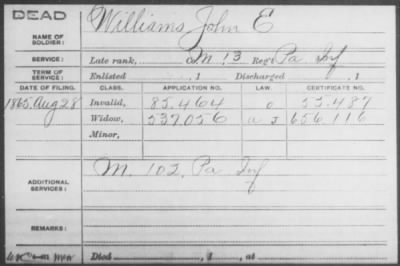 DEAD
NAME OF SOLDIER: Williams John E
SERVICE: Late rank, Co. M 13 Reg't Pa Inf
TERM OF SERVICE: Enlisted , 1 Discharged , 1
DATE OF FILING. CLASS. APPLICATION NO. LAW. CERTIFICATE NO.
1865 Aug 28 Invalid, 85.464 o 55.487
Widow, 537056 656.116
Minor,
ADDITIONAL SERVICES: M. 102. Pa Inf
REMARKS:
Died , 1 , at